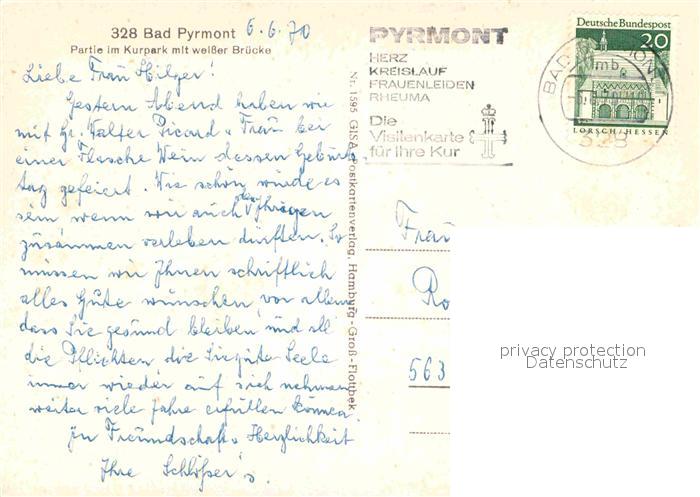 328 Bad Pyrmont 6.6.70
Partie im Kurpark mit weißer Brücke
Liebe Frau Hilger!
Gestern Abend haben wir
mit Hr. Walter Picard u. Frau bei
einer Flasche Wein dessen Geburts
tag gefeiert. Wie schön würde es
sein wenn wir auch den Ihrigen
zusammen verleben dürften. So
müssen wir Ihnen schriftlich
alles Gute wünschen, vor allem
dass Sie gesund bleiben und all
die Pflichten die Sie gute Seele
immer wieder auf sich nehmen
weiter viele Jahre erfüllen können
In Freundschaft u. Herzlichkeit
Ihre Schlößer's.
Nr. 1595 GISA Postkartenverlag, Hamburg-Groß-Flottbek
PYRMONT
HERZ
KREISLAUF
FRAUENLEIDEN
RHEUMA
Die
Visitenkarte
für Ihre Kur
BAD
328
Deutsche Bundespost
20
LORSCH/HESSEN
Frau
Ro
563
privacy protection
Datenschutz